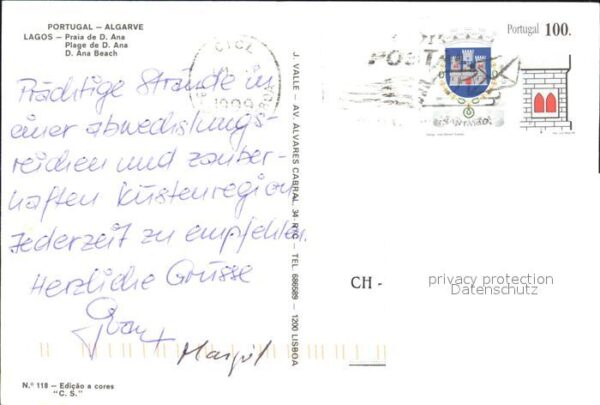 PORTUGAL – ALGARVE
LAGOS – Praia de D. Ana
Plage de D. Ana
D. Ana Beach
Prächtige Strände in
einer abwechslungs-
reichen und zauber-
haften Küstenregion
Jederzeit zu empfehlen.
Herzliche Grüsse
Nº 118 – Edição a cores
"C. S."
J. VALLE – AV. ALVARES CABRAL, 34 R/C – TEL. 686589 – 1200 LISBOA
CICL
1999
LISBOA
POSTAL
Portugal 100.
CH -
privacy protection
Datenschutz